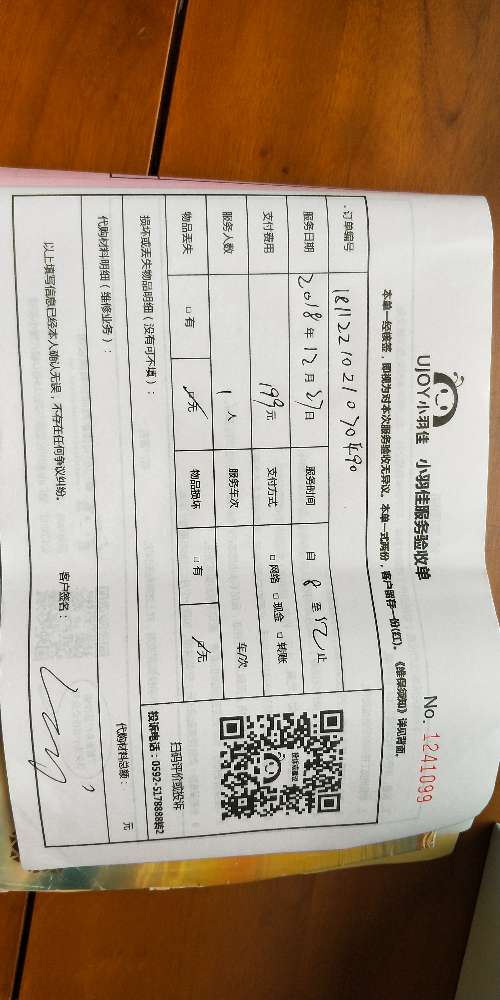 UJOY小羽佳 小羽佳服务验收单 No. 1241099
本单一经接签，即视为对本次服务验收无异议。本单一式两份，客户留存一份(红)。《维保须知》详见背面。
订单编号 1811221021070490
服务日期 2018年12月27日 服务时间 自8至12止
支付费用 199元 支付方式 □网络 □现金 □转账
服务人数 1人 服务车次 车/次
物品丢失 □有 □无 物品损坏 □有 □无
损坏或丢失物品明细（没有可不填）：
扫码评价或投诉
投诉电话：0592-5178888转2
代购材料明细（维修业务）： 代购材料总额： 元
以上填写信息已经本人确认无误，不存在任何争议纠纷。 客户签名：